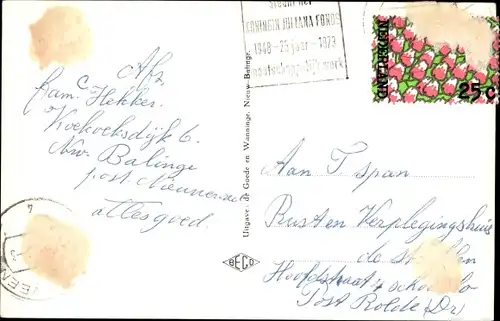 Steunt het
KONINGIN JULIANA FONDS
1948-25 jaar-1973
maatschappelijk werk
NEDERLAND
25 c
Afz
fam C Hekker.
Koekoeksdijk 6.
Nw. Balinge
post Nieuweroord
alles goed.
Uitgave: de Goede en Wanninge, Nieuw-Balinge.
BECO
VEEN
Aan T span
Rust en Verplegingshuis
de
Hoofdstraat
Post Rolde (Dr)